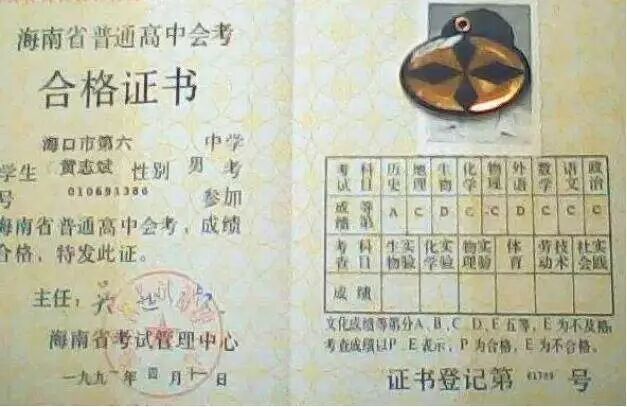 海南省普通高中会考
合格证书
海口市第六 中学
学生 黄志斌 性别 男 考
号 010691386 参加
海南省普通高中会考，成绩
合格，特发此证。
主任：
海南省考试管理中心
一九九一年四月十一日
考试科目 历史 地理 生物 化学 物理 外语 数学 语文 政治
成绩等第 A C D C C D C C C
考查科目 生物实验 化学实验 物理实验 体育 劳动技术 社会实践
成绩
文化成绩等第分A、B、C、D、E五等，E为不及格；
考查成绩以P、E表示，P为合格，E为不合格。
证书登记第 号